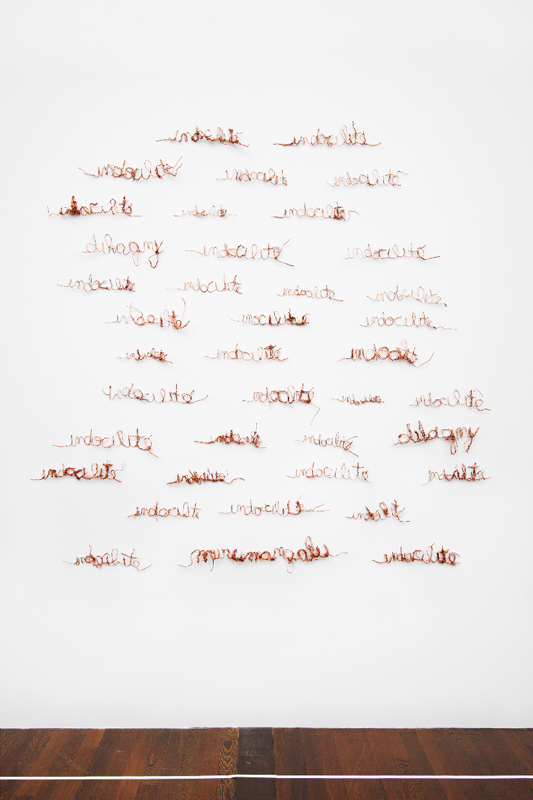 indocilité indocilité
indocilité indocilité indocilité
indocilité indocilité indocilité
indocilité indocilité
indocilité indocilité indocilité indocilité
indocilité indocilité indocilité
indocilité indocilité indocilité
indocilité indocilité indocilité indocilité
indocilité indocilité indocilité
indocilité indocilité indocilité indocilité
indocilité indocilité indocilité
indocilité indocilité